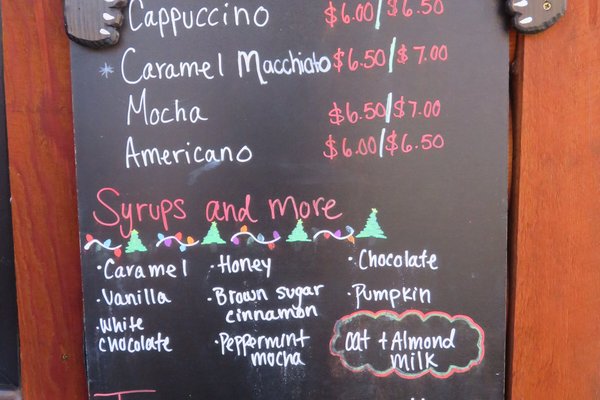 Cappuccino $6.00/$6.50
* Caramel Macchiato $6.50/$7.00
Mocha $6.50/$7.00
Americano $6.00/$6.50
Syrups and more
·Caramel ·Honey ·Chocolate
·Vanilla ·Brown sugar cinnamon ·Pumpkin
·White chocolate ·Peppermint mocha Oat + Almond Milk